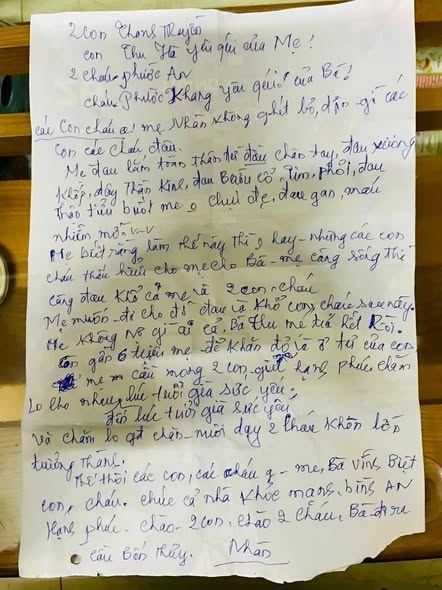 2 con Thong Truyền
con Thu Hà yêu quí của Mẹ!
2 cháu phước AN
cháu Phước Khang yêu quí của Bà!
các Con cháu ạ! mẹ Nhàn không ghét bỏ, dận gì các
con các cháu đâu.
Mẹ đau lắm toàn thân từ đầu chân tay, đau xương
Khớp, dây Thần Kinh, đau Bướu cổ, Tim, phổi, đau
thận tiểu buốt mẹ o chụi đc, đau gan, máu
nhiễm mỡ. v-v
Mẹ biết rằng làm thế này thì o hay - những các con
cháu thấu hiểu cho mẹ cho Bà - mẹ càng sống thì
càng đau khổ cả mẹ và 2 con. cháu
Mẹ muốn đi cho đỡ đau và khổ con, cháu sau này.
Mẹ không Nợ gì ai cả, Bà Thu mẹ trả hết Rồi.
Còn gần 6 triệu mẹ để khăn đỏ là ở tủ của con
mẹ cầu mong 2 con giữ hạng phúc chăm
Lo cho nhau lúc tuổi già sức yêu,
đến lúc tuổi già sức yêu,
và chăm lo gd chăn nuôi dạy 2 cháu khôn lớn
trưởng Thàng.
Thế thôi các con, các cháu ạ - mẹ, Bà vĩnh Biệt
con, cháu. chúc cả nhà khỏe mạng. bình AN
Hạng phúc. chào 2 con. chào 2 cháu. Bà đi ra
cầu Bến Thủy. Nhàn